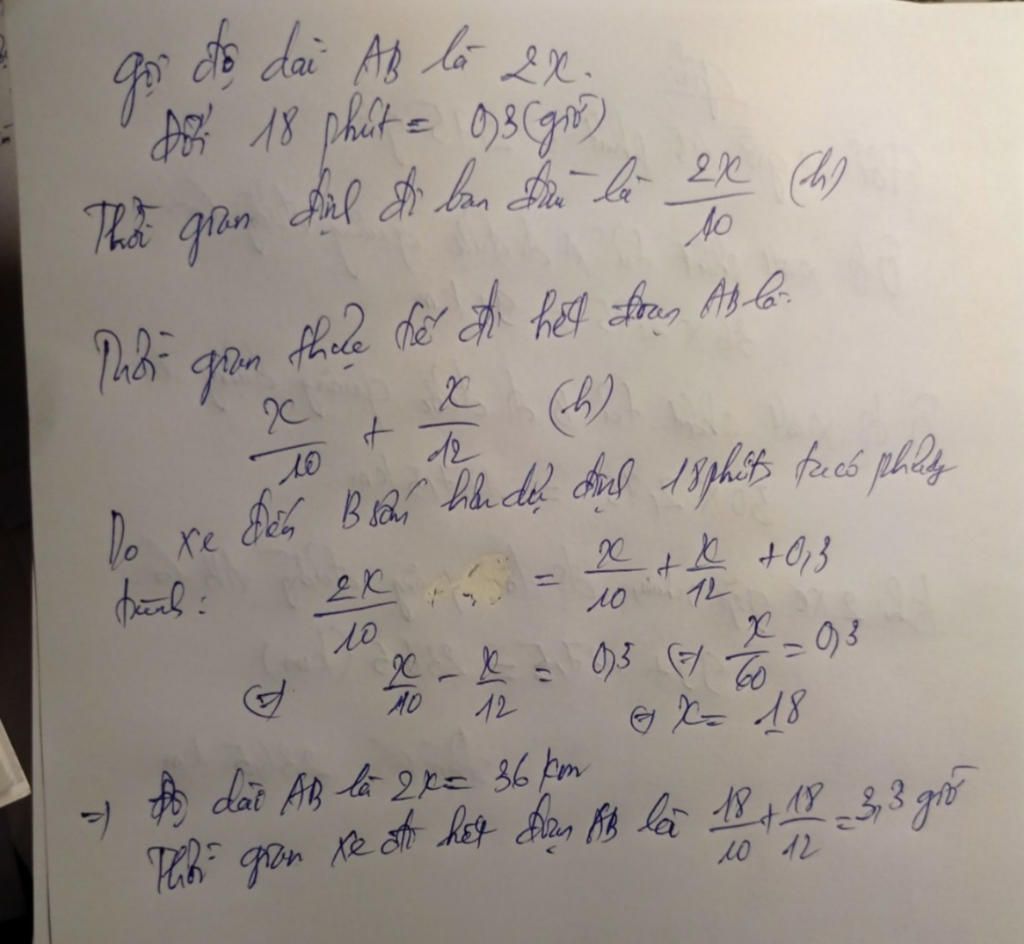 Gọi độ dài AB là 2x.
Đổi 18 phút = 0,3 (giờ)
Thời gian định đi ban đầu là 2x/10 (h)
Thời gian thực tế đi hết đoạn AB là
x/10 + x/12 (h)
Do xe đến B sớm hơn dự định 18 phút ta có phương
trình: 2x/10 = x/10 + x/12 + 0,3
⇔ x/10 - x/12 = 0,3 ⇔ x/60 = 0,3
⇔ x = 18
⇒ Độ dài AB là 2x = 36 km
Thời gian xe đi hết đoạn AB là 18/10 + 18/12 = 3,3 giờ